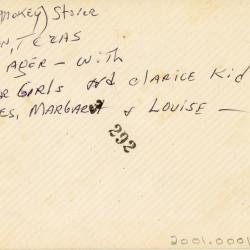 Smokey) Stover
N, TEXAS
AGER - WITH
R GIRLS and Clarice Kid
ES, MARGARET & LOUISE -
292
2001.000